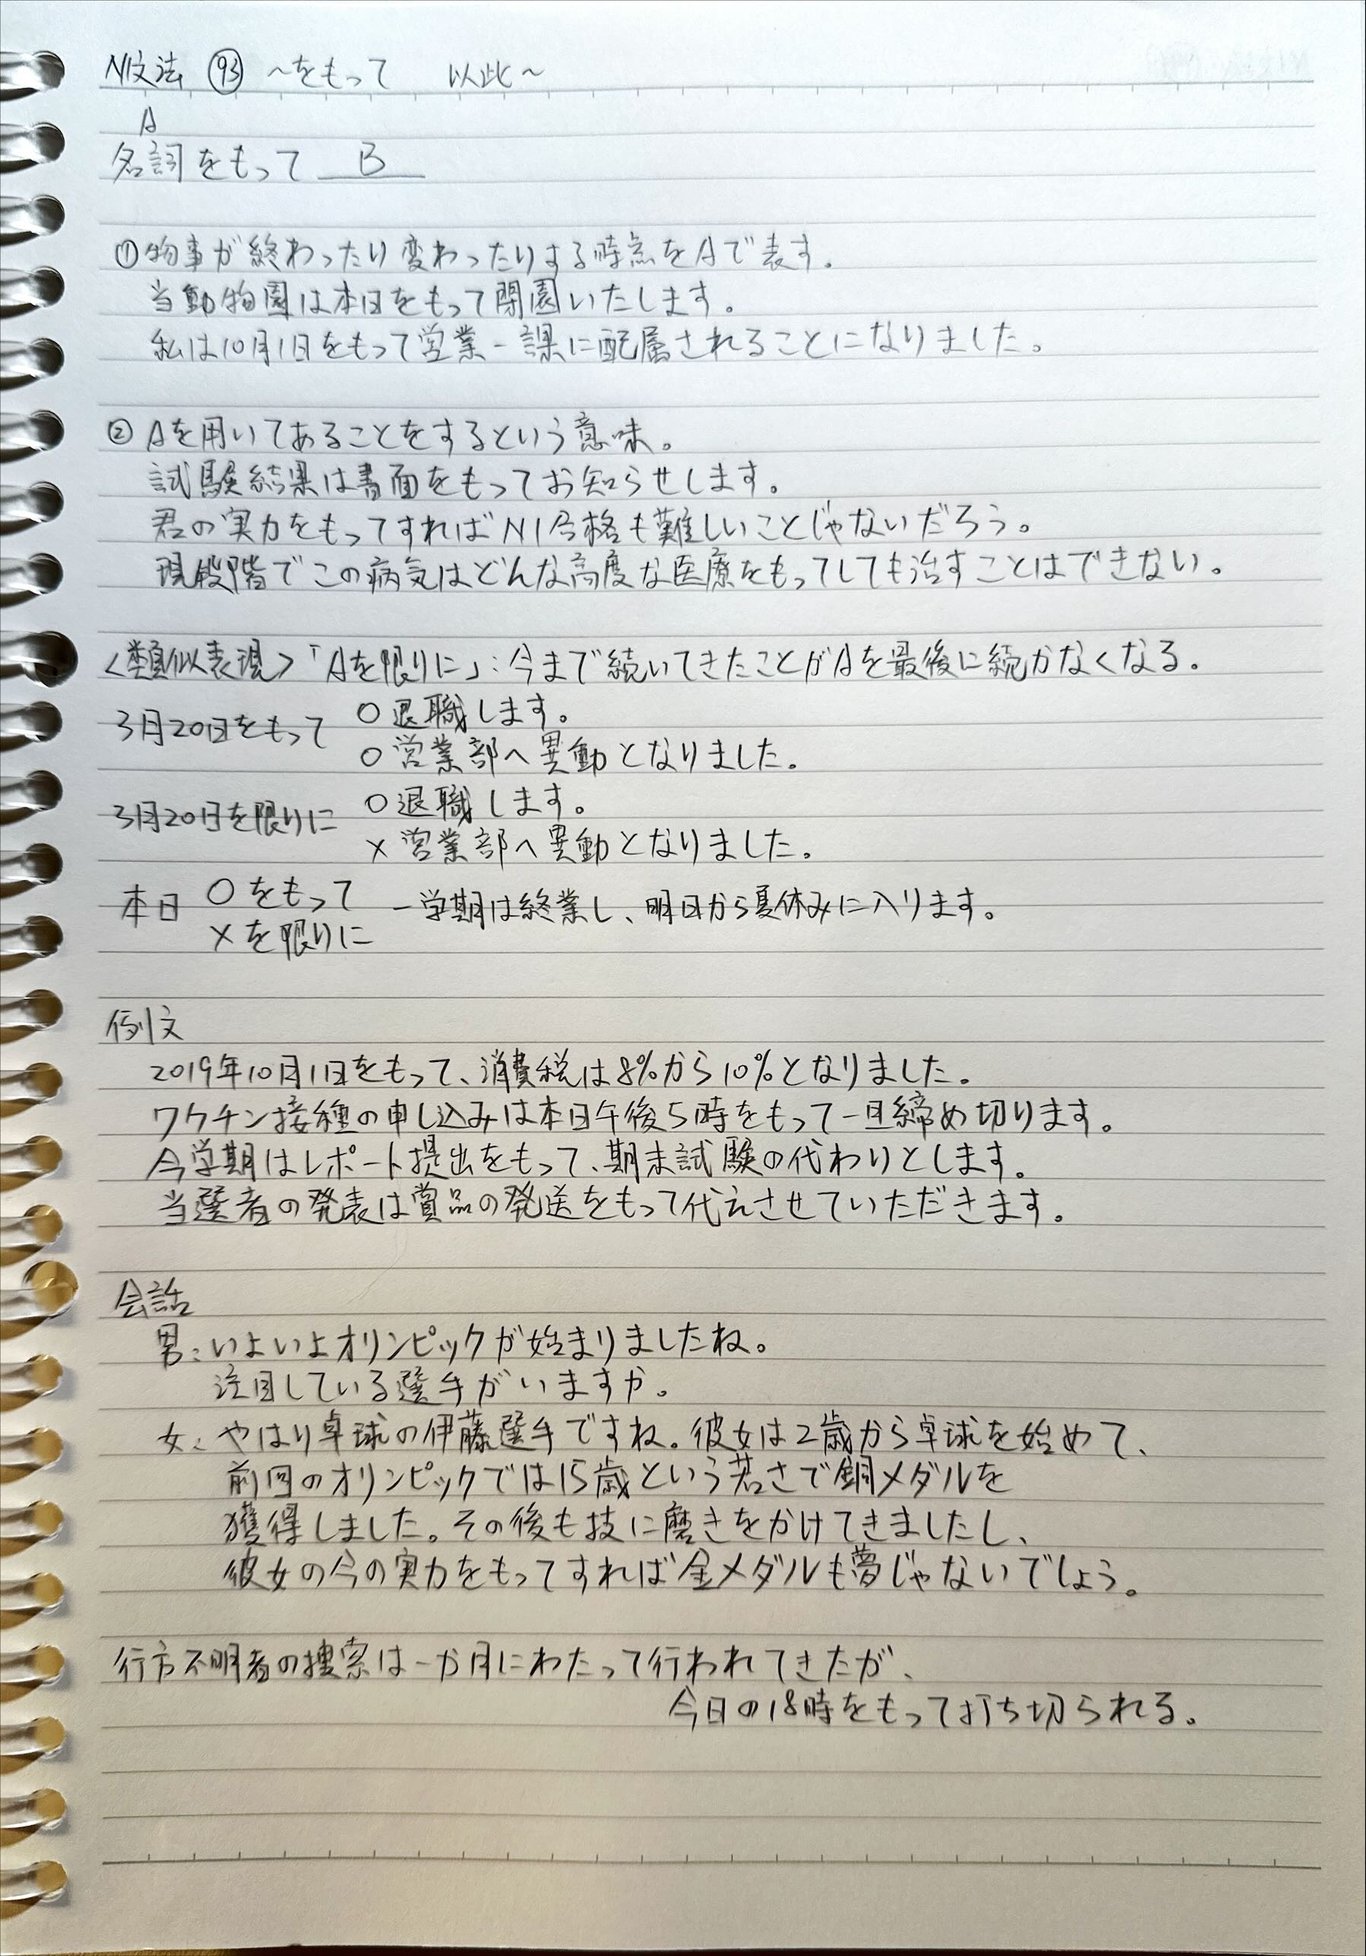 N1文法 ㊓ ～をもって 以此～
A
名詞をもって B
①物事が終わったり変わったりする時点をAで表す。
当動物園は本日をもって閉園いたします。
私は10月1日をもって営業一課に配属されることになりました。
②Aを用いてあることをするという意味。
試験結果は書面をもってお知らせします。
君の実力をもってすればN1合格も難しいことじゃないだろう。
現段階でこの病気はどんな高度な医療をもってしても治すことはできない。
<類似表現>「Aを限りに」：今まで続いてきたことがAを最後に続かなくなる。
3月20日をもって ○退職します。
○営業部へ異動となりました。
3月20日を限りに ○退職します。
×営業部へ異動となりました。
本日 ○をもって 一学期は終業し、明日から夏休みに入ります。
×を限りに
例文
2019年10月1日をもって、消費税は8%から10%となりました。
ワクチン接種の申し込みは本日午後5時をもって一旦締め切ります。
今学期はレポート提出をもって、期末試験の代わりとします。
当選者の発表は賞品の発送をもって代えさせていただきます。
会話
男：いよいよオリンピックが始まりましたね。
注目している選手がいますか。
女：やはり卓球の伊藤選手ですね。彼女は2歳から卓球を始めて、
前回のオリンピックでは15歳という若さで銅メダルを
獲得しました。その後も技に磨きをかけてきましたし、
彼女の今の実力をもってすれば金メダルも夢じゃないでしょう。
行方不明者の捜索は一か月にわたって行われてきたが、
今日の18時をもって打ち切られる。